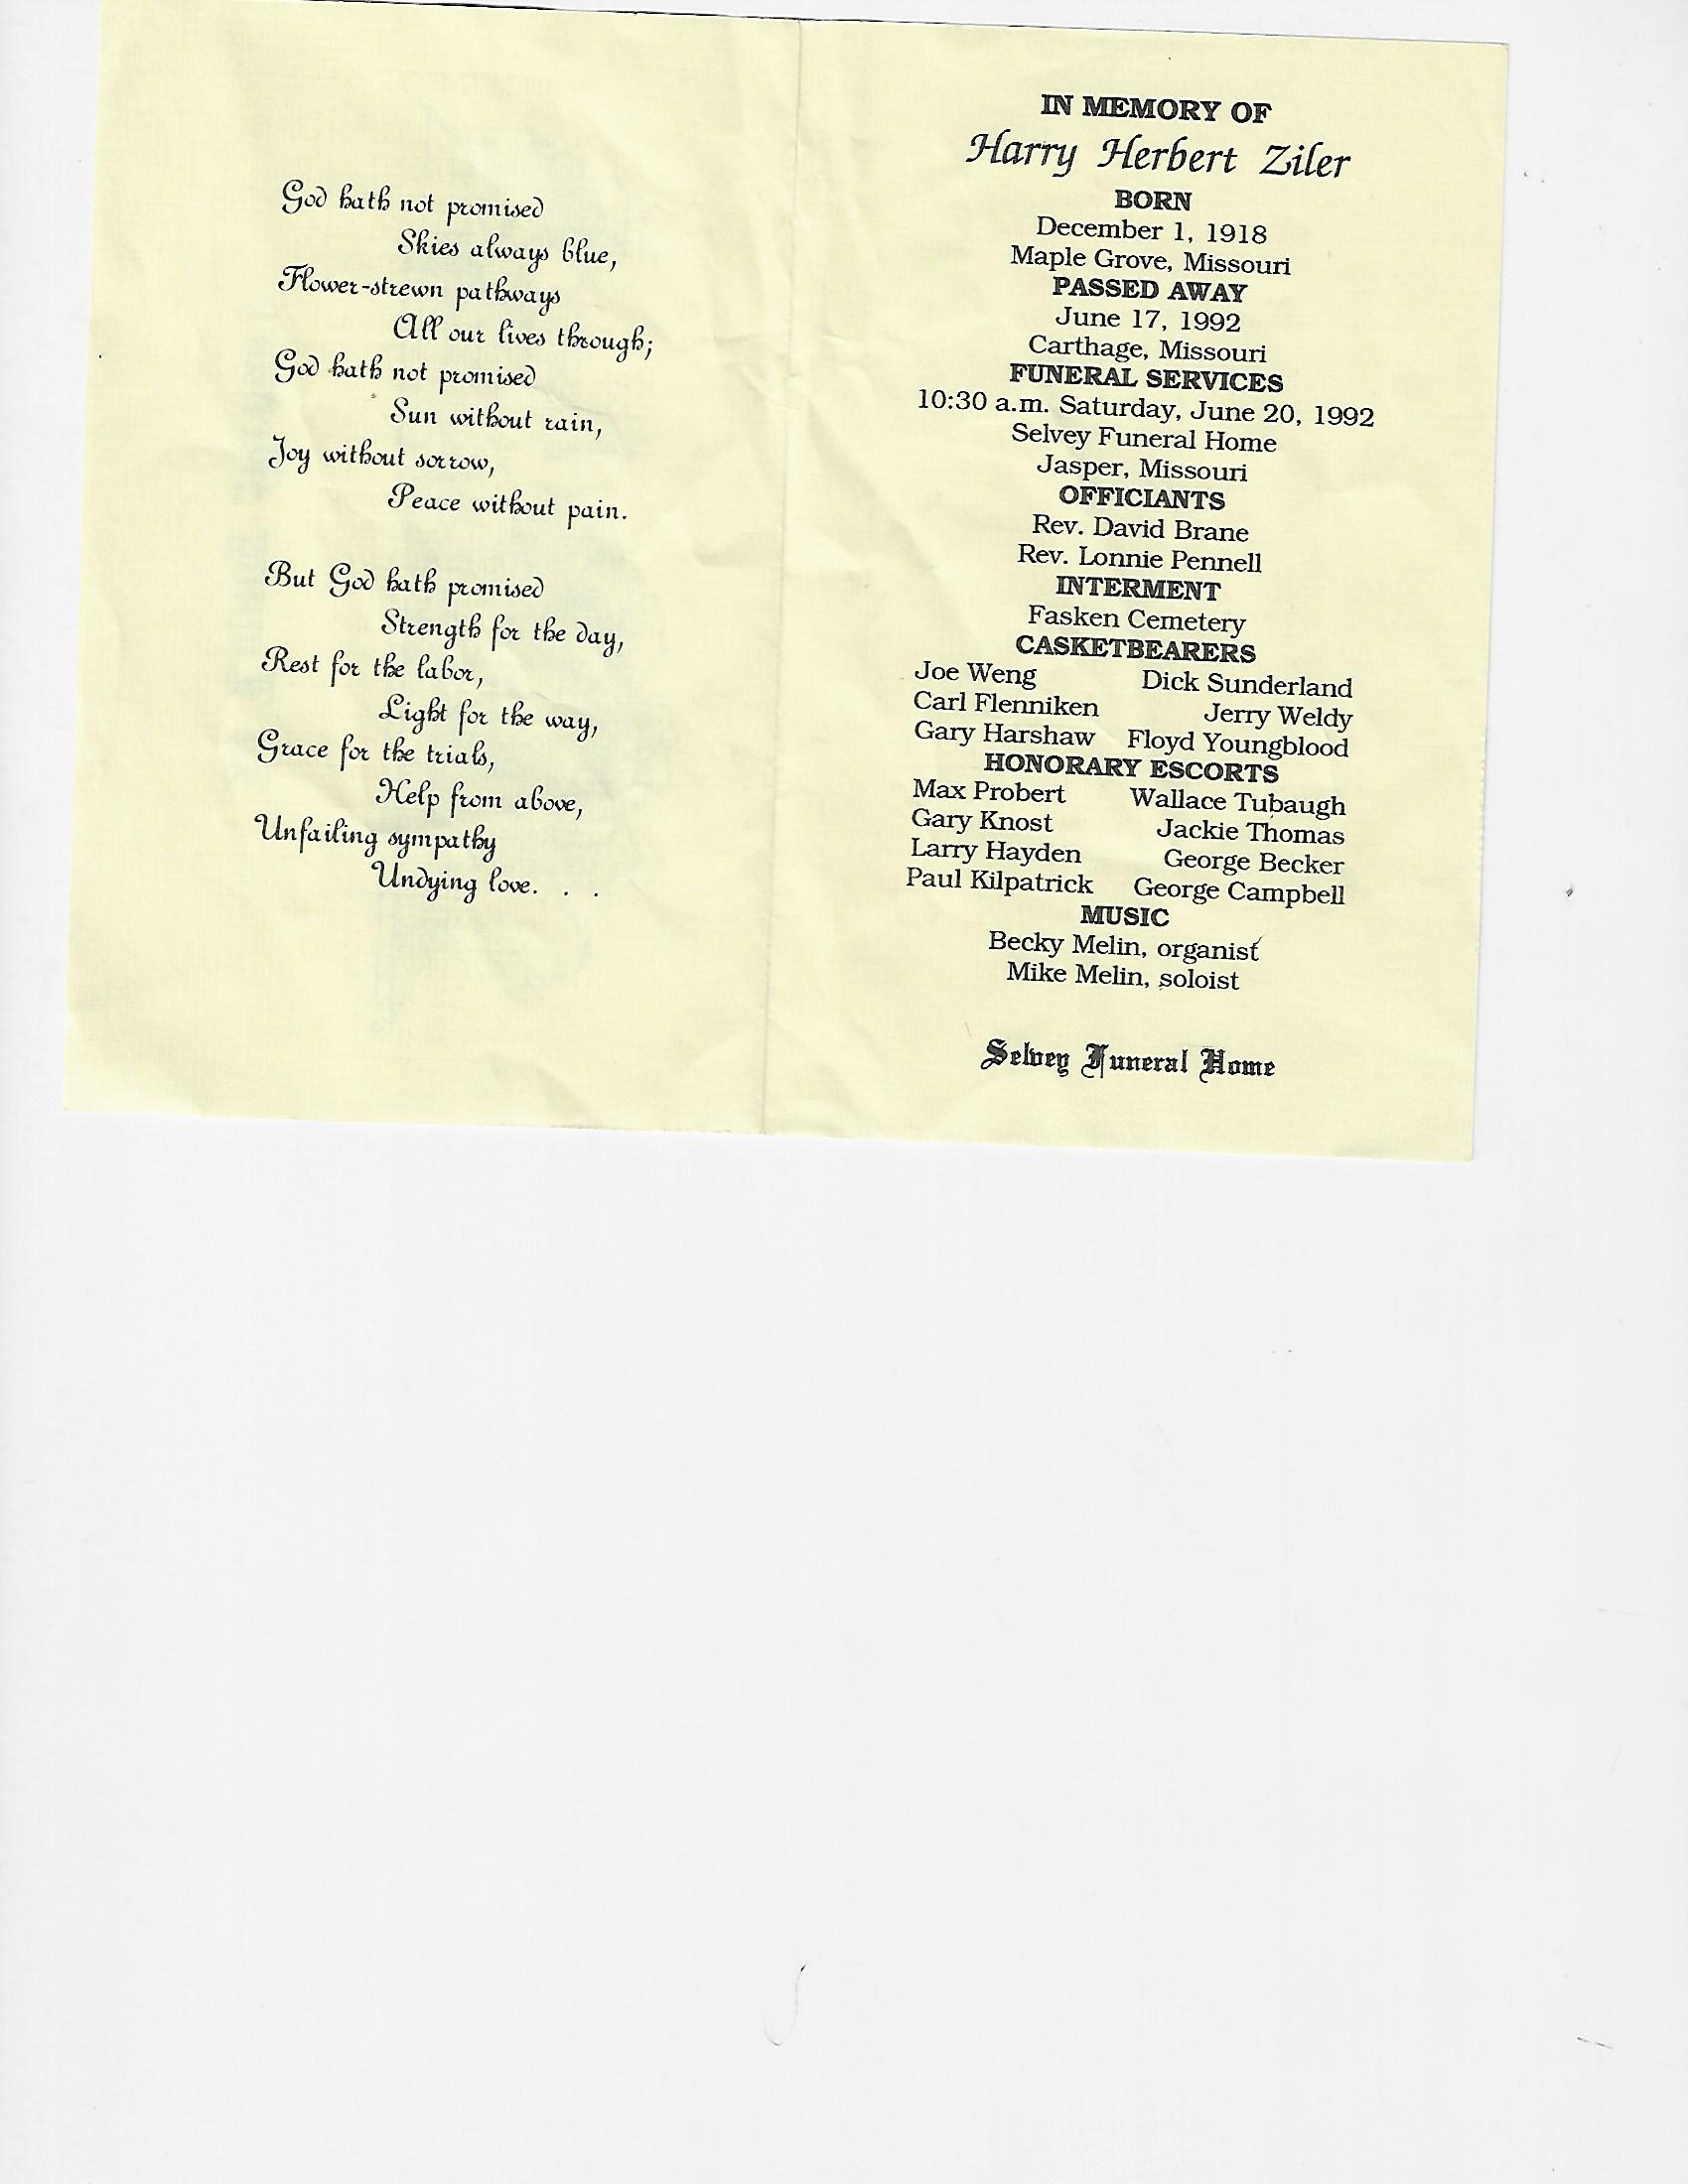 God hath not promised
Skies always blue,
Flower-strewn pathways
All our lives through;
God hath not promised
Sun without rain,
Joy without sorrow,
Peace without pain.
But God hath promised
Strength for the day,
Rest for the labor,
Light for the way,
Grace for the trials,
Help from above,
Unfailing sympathy
Undying love. . .
IN MEMORY OF
Harry Herbert Ziler
BORN
December 1, 1918
Maple Grove, Missouri
PASSED AWAY
June 17, 1992
Carthage, Missouri
FUNERAL SERVICES
10:30 a.m. Saturday, June 20, 1992
Selvey Funeral Home
Jasper, Missouri
OFFICIANTS
Rev. David Brane
Rev. Lonnie Pennell
INTERMENT
Fasken Cemetery
CASKETBEARERS
Joe Weng Dick Sunderland
Carl Flenniken Jerry Weldy
Gary Harshaw Floyd Youngblood
HONORARY ESCORTS
Max Probert Wallace Tubaugh
Gary Knost Jackie Thomas
Larry Hayden George Becker
Paul Kilpatrick George Campbell
MUSIC
Becky Melin, organist
Mike Melin, soloist
Selvey Funeral Home